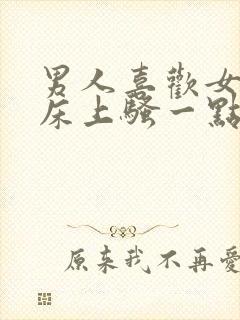 男人喜歡女
床上騷一點
原來我不再愛